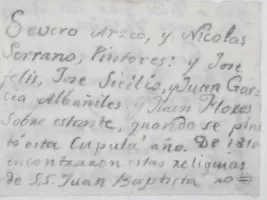 Severo Arzeo, y Nicolas
Serrano, Pintores: y Jose
felis, Jose Sicilia, y Juan Gar-
cia Albañiles y Juan Flores
Sobre estante, quando se pin
tó esta Cupula año. De 1810
encontraron estas religuias
de S.S. Juan Baptista